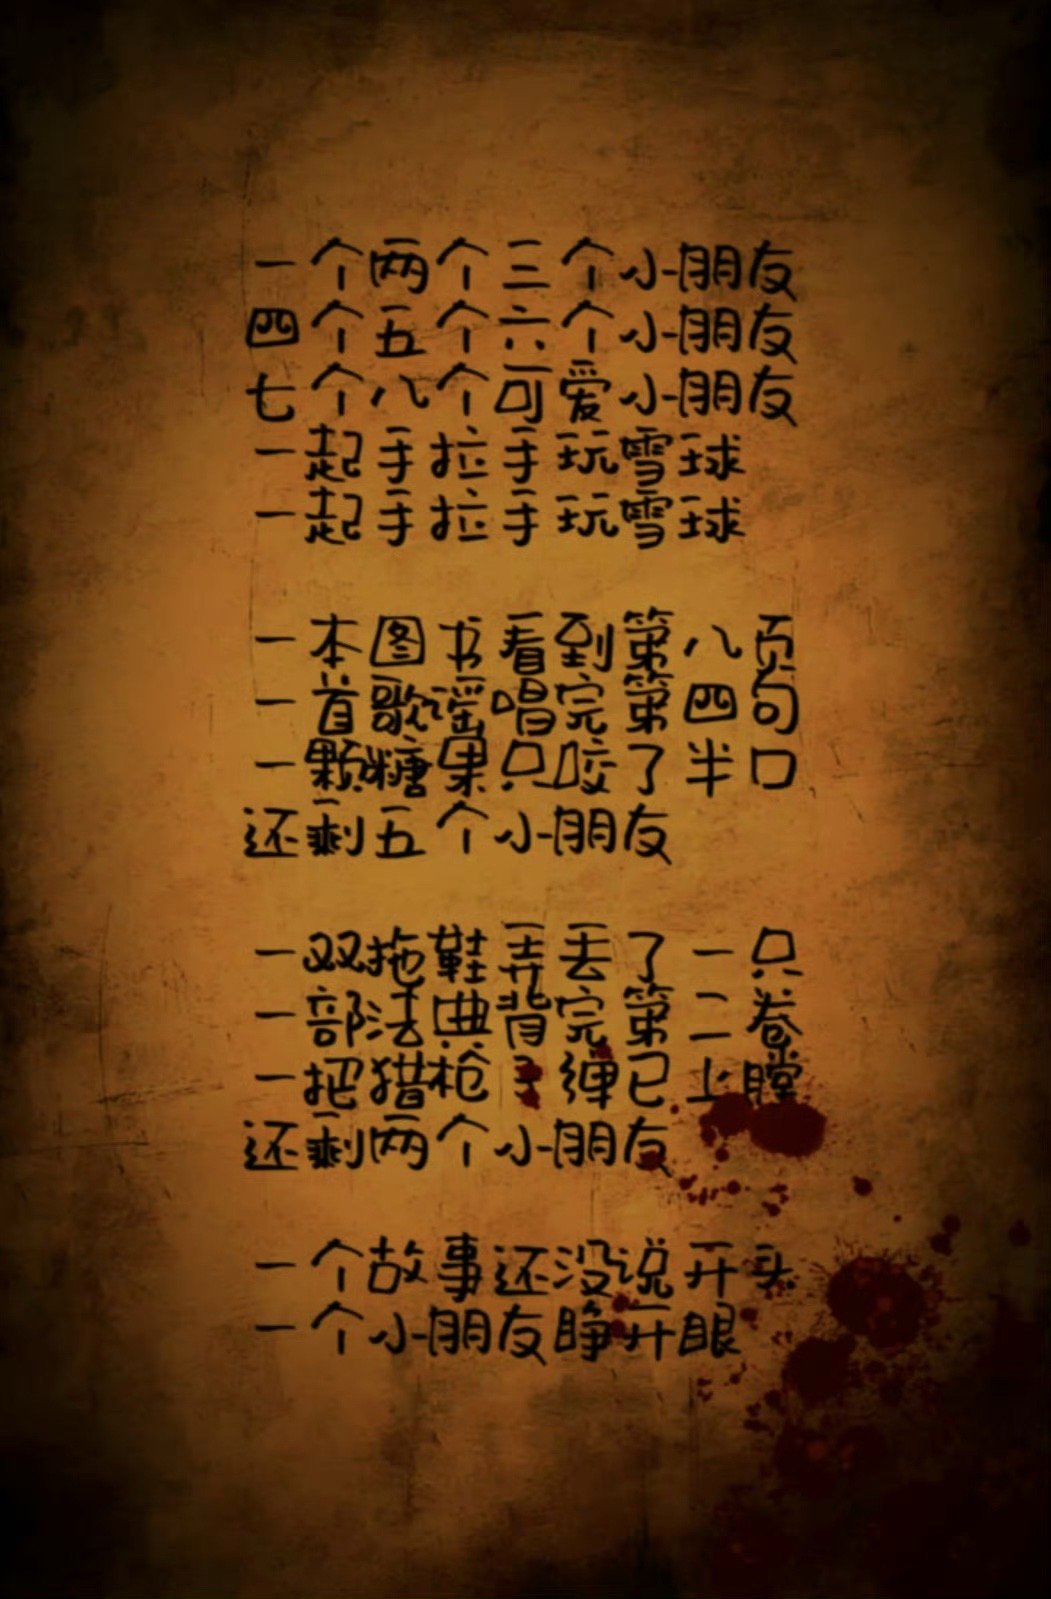 一个两个三个小朋友
四个五个六个小朋友
七个八个可爱小朋友
一起手拉手玩雪球
一起手拉手玩雪球
一本图书看到第八页
一首歌谣唱完第四句
一颗糖果只咬了半口
还剩五个小朋友
一双拖鞋弄丢了一只
一部法典背完第二卷
一把猎枪子弹已上膛
还剩两个小朋友
一个故事还没说开头
一个小朋友睁开眼